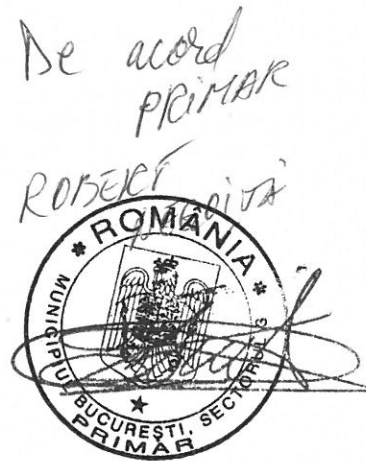 De acord
PRIMAR
ROBERT
* ROMÂNIA *
MUNICIPIUL BUCUREȘTI, SECTORUL 3
PRIMAR